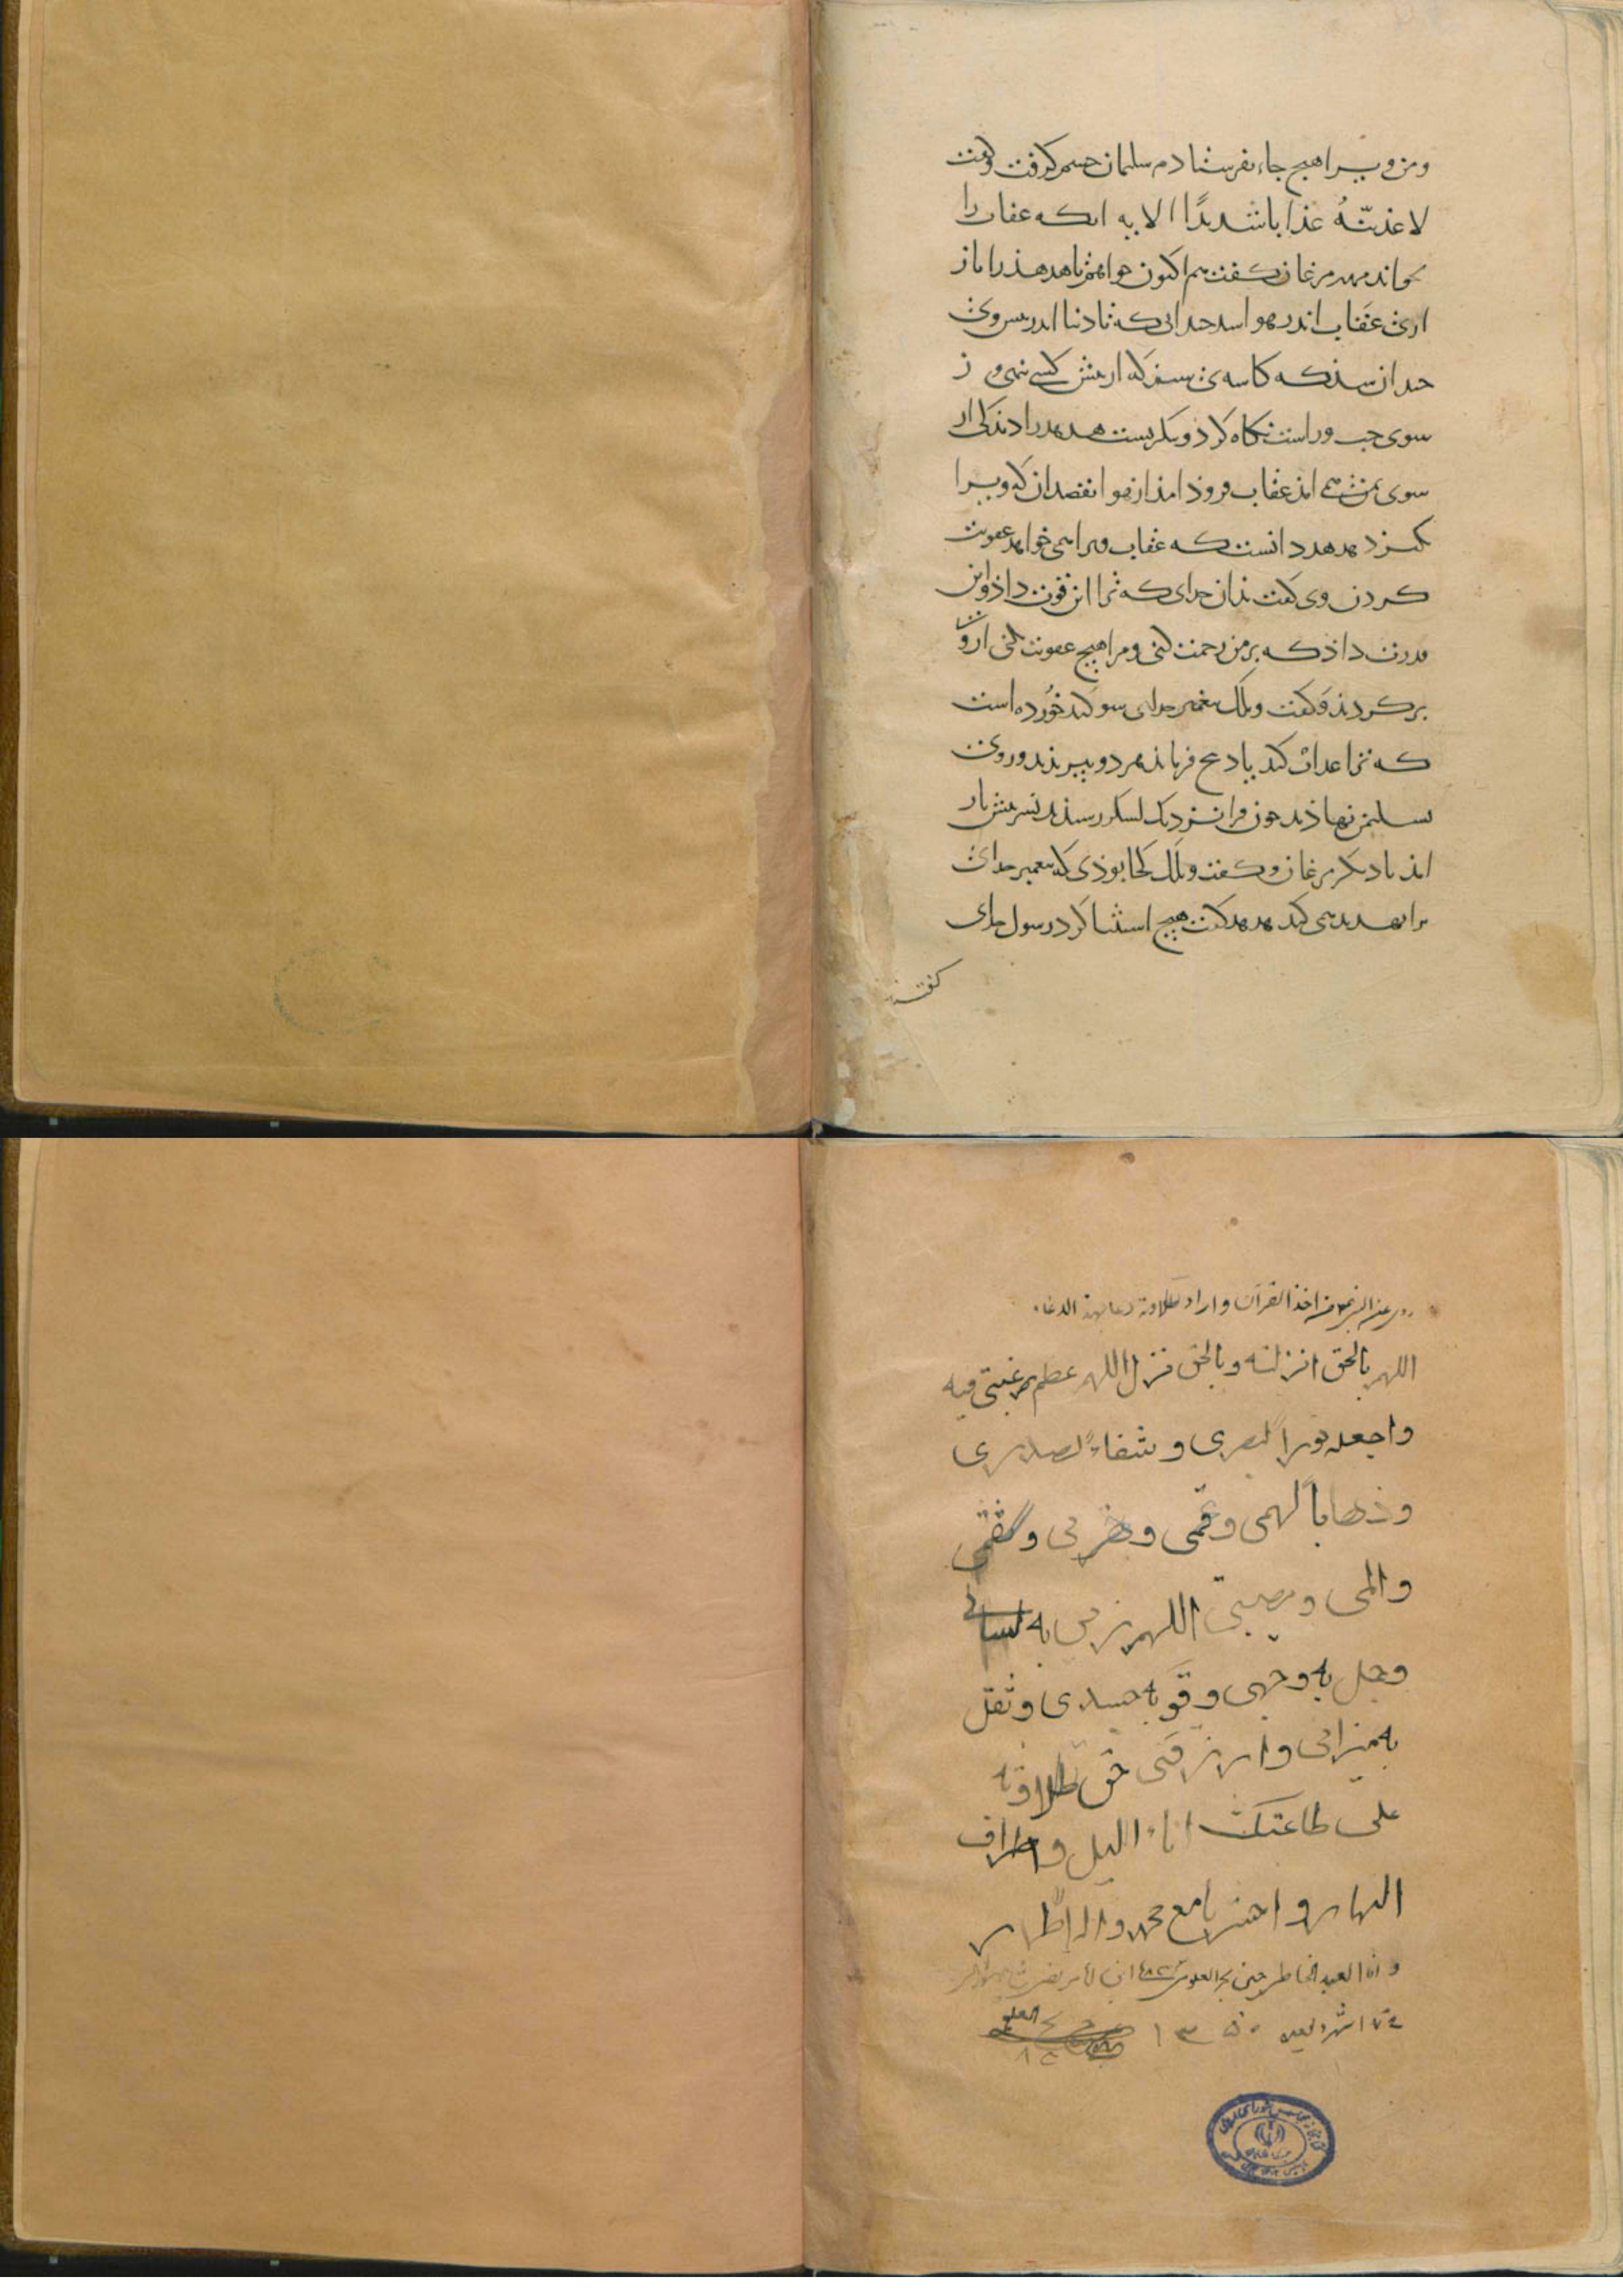 و من ویرا هیچ جاء نفرستادم سلیمان خشم گرفت و گفت
لاعذبنّهُ عذابا شدیدًا الایه انکه عقاب را
بخواند مهتر مرغان گفت هم اکنون خواهم تا هدهد را باز
اری عقاب اندر هوا شد چندانی که تا دنیا اندر پیش وی
چندان شد که کاسه‌ی سفر که از پیش کسی نهی و ز
سوی چپ و راست نگاه کرد و بنگریست هدهد را دید کی از
سوی یمن همی امد عقاب فروذ امد از هوا بقصد ان که ویرا
بگیرد هدهد دانست که عقاب ویرا همی خواهد عقوبت
کردن وی گفت بدان خدای که ترا این قوت داد و این
قدرت داد که بر من رحمت کنی و مرا هیچ عقوبت نکنی از وی
برگردید و گفت ویلک پیغمبر خدای سوگند خورده است
که ترا عذاب کند یا ذبح فرماید هر دو بپریدند و روی
بسلیمن نهادند چون فرا نزدیک لشکر رسیدند نسر پیش باز
امد با دیگر مرغان و گفت ویلک کجا بودی که پیغمبر خدای
ترا تهدید همی کند هدهد گفت هیچ استثنا کرد رسول خدای
گفتند
اخذ القران و اراد تلاوته دعا بهذا الدعاء
اللهم بالحق انزلته و بالحق نزل اللهم عظم رغبتی فیه
واجعله نورا لبصری و شفاءً لصدری
و ذهاباً لهمی و غمی و حزنی و سقمی
والمی و مصیبتی اللهم زین به لسانی
وجمل به وجهی و قو به جسدی و ثقل
به میزانی و ارزقنی حق تلاوته
علی طاعتک اناء اللیل و اطراف
النهار و احشرنا مع محمد و اله الاطهار
و انا العبد الخاطی حسین بحر العلوم
۱۳۵۰